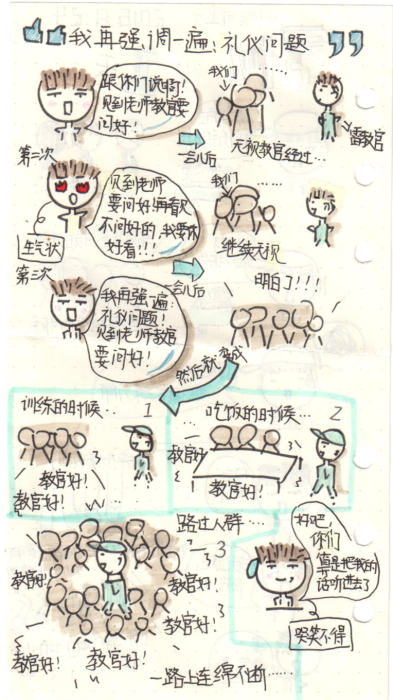 我再强调一遍:礼仪问题
跟你们说啊!
见到老师教官要
问好!
我们
……
第一次
一会儿后
无视教官经过…
雷教官
见到老师
要问好!再看见
不问好的,我要你
好看!!!
我们
……
生气状
第二次
一会儿后
继续无视
明白了!!!
我再强一遍:
礼仪问题!
见到老师教官
要问好!
第三次
然后就变成
训练的时候… 1
教官好!
教官好!
吃饭的时候… 2
教官好
教官好!
路过人群…
3
教官好!
教官好!
教官好!
教官好!
教官好!
一路上连绵不断……
好吧,
你们
算是把我的
话听进去了
哭笑不得